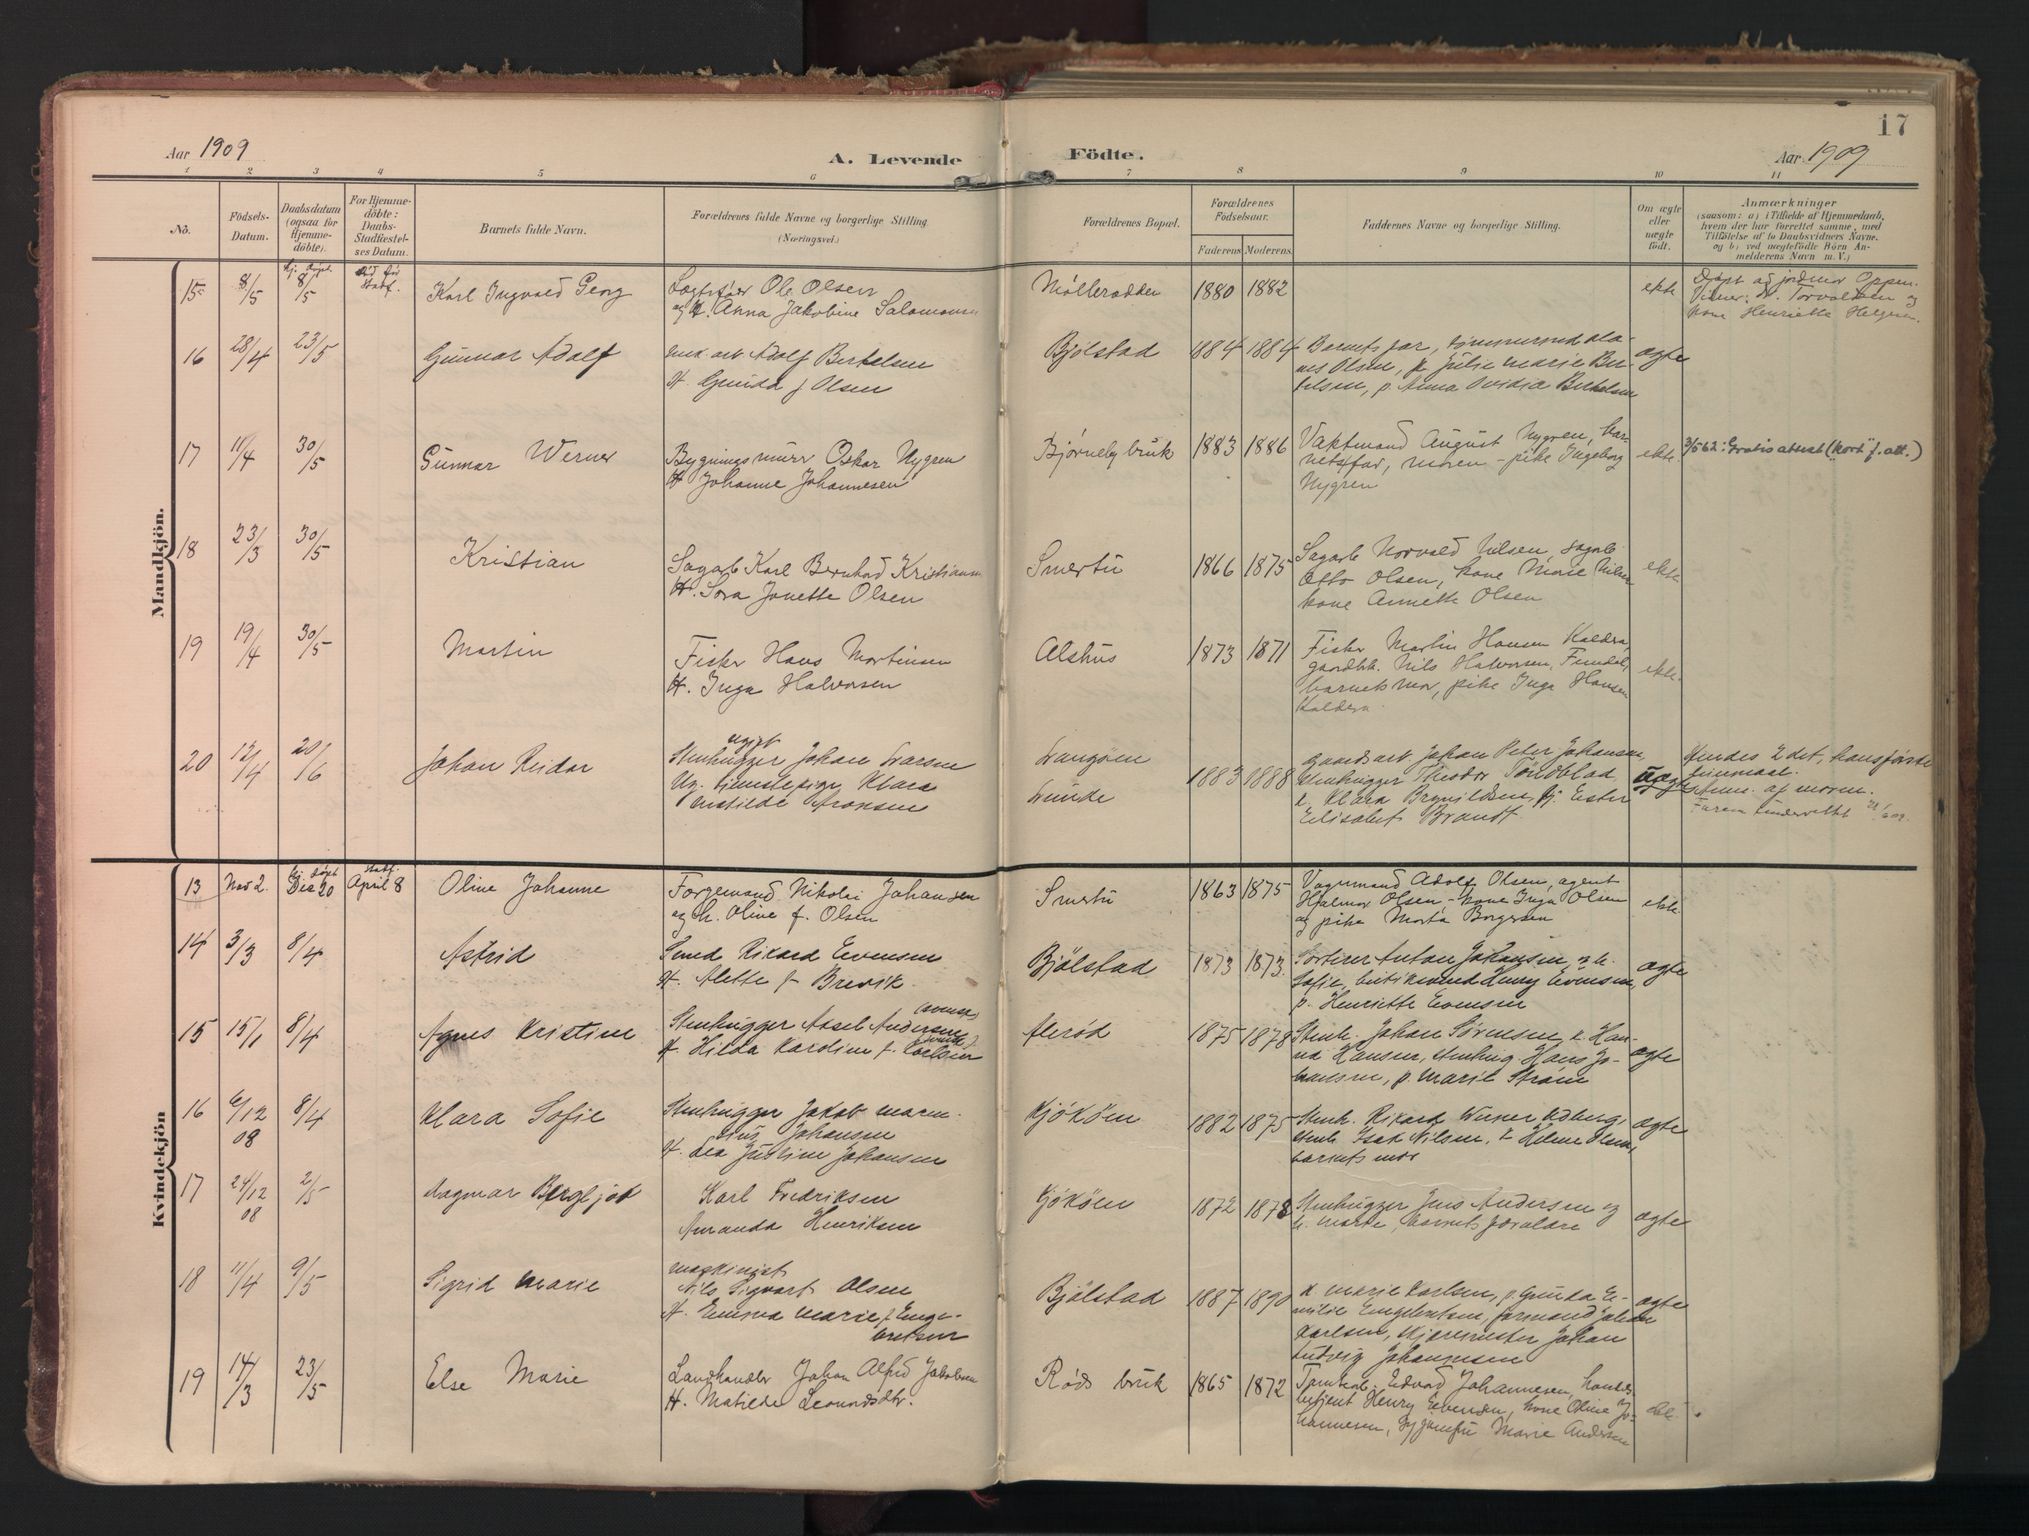 17
Aar 1909
A. Levende
Födte.
Aar 1909
1 2 3 4 5 6 7 8 9 10 11
No.
Födsels-
Datum.
Daabsdatum
(ogsaa for
Hjemme-
döbte).
For Hjemme-
döbte:
Daabs-
Stadfæstel-
ses Datum.
Barnets fulde Navn.
Forældrenes fulde Navne og borgerlige Stilling.
(Næringsvei.)
Forældrenes Bopæl.
Forældrenes
Födselsaar.
Faderens Moderens
Faddernes Navne og borgerlige Stilling.
Om ægte
eller
uægte
födt.
Anmærkninger
(saasom: a) i Tilfælde af Hjemmedaab,
hvem der har forrettet samme, med
Tilföielse af to Daabsvidners Navne.
og b) ved uægtefödte Börn An-
melderens Navn m. V.)
Mandkjön.
15 8/5 8/5
Karl Ingvald Georg
Ole Olsen
og H. Anna Jakobine Salomonsen
Mölleradden 1880 1882
ekte
Döpt af jordmor Oppen.
Torvaldsen og
kone Henriette Helgesen.
16 28/4 23/5
Gunnar Adolf
Adolf Bertelsen
H. Gunda f Olsen
Bjölstad 1884 1884
Barnets far, tömmermand
Olsen, p Julie Marie Ber-
telsen, p. Anna Ovidia Bertelsen
ægte
17 11/4 30/5
Gunnar Werner
Bygningsmurer Oskar Nygren
H. Johanne Johannesen
Björneby bruk 1883 1886
Vaktmand August Nygren, bar-
netsfar, moren - pike Ingeborg
Nygren
ekte.
3/5 62: Gratis attest (kort f. att.)
18 23/3 30/5
Kristian
Sagarb Karl Bernhard Kristiansen
H. Lova Jonette Olsen
Smertu 1866 1875
Sagarb Norvald Nilsen, sagarb.
Otto Olsen, kone Marie Nilsen
kone Annette Olsen
ekte
19 19/4 30/5
Martin
Fisker Hans Martinsen
H. Inga Halvorsen
Alshus 1873 1871
Fisker Martin Hansen Kaldera,
gaardbr. Nils Halvorsen,
barnets mor, pike Inga Hansen
Kaldera.
ekte.
20 12/4 20/6
Johan Reidar
ugift
Stenhugger Johan Larsen
Ug. tjenestepige Klara
Aronsen
Langöen
Lunde
1883 1888
gaardsarb Johan Peter Johansen,
Stenhugger Theodor Töndblad
k. Klara Brynildsen, Ester
Elisabet Brandt.
uægte
Hendes 2det, hans förste
leiermaal.
Anm. af moren.
Faren underrettet
Kvindekjön
13 Nov 2. Dec 20 April 8
Oline Johanne
Forgemand Nikolai Johansen
og H. Oline f. Olsen
Smertu 1863 1875
Adolf Olsen, agent
Hjalmar Olsen, - kone Inga Olsen
og pike Marta Borgersen
ekte.
14 3/3 8/4
Astrid
Smed Rikard Evensen
H. Alette f Brevik.
Bjölstad 1873 1873.
Sortirer Anton Johansen,
Sofie, Henry Evensen,
p. Henriette Evensen
ægte
15 15/1 8/4
Agnes Kristine
Stenhugger Axel Andersen (svensk)
H. Hilda Karoline f. Carlsen
Aleröd 1875 1878
Stenh. Johan Sörensen, k Han-
na Hansen, stenhug. Hans Jo-
hansen, p. Marie Ström
ægte
16 6/12 08 8/4
Klara Sofie
Stenhugger Jakob
Johansen
H. Lea Justine Johansen
Kjököen 1882 1875
Stenh. Rikard Werner Edberg,
stenh Isak Nilsen, k Helene Olsen,
barnets mor
ægte
17 24/12 08 2/5
Dagmar Bergljot
Karl Fredriksen
Amanda Henriksen
Kjököen 1872 1878
Stenhugger Jens Andersen og
h. Marte, barnets forældre
ægte
18 11/4 9/5
Sigrid Marie
maskinist
Nils Sigvart Olsen
H. Emma Marie f Enge-
bretsen
Bjölstad 1887 1890
k Marie Karlsen, p. Gunda E-
milie Engebretsen, formand Johan
Karlsen, skjæremester Johan
Ludvig Johannesen
ægte
19 14/3 23/5
Else Marie
Landhandler Johan Alfred Jakobsen
H. Matilde Leonardsdtr.
Röds bruk 1865 1872
Tomtearb. Edvard Johannesen, handels-
betjent Henry Evensen, kone Oline Jo-
hannesen, Marie Andersen
ekte.